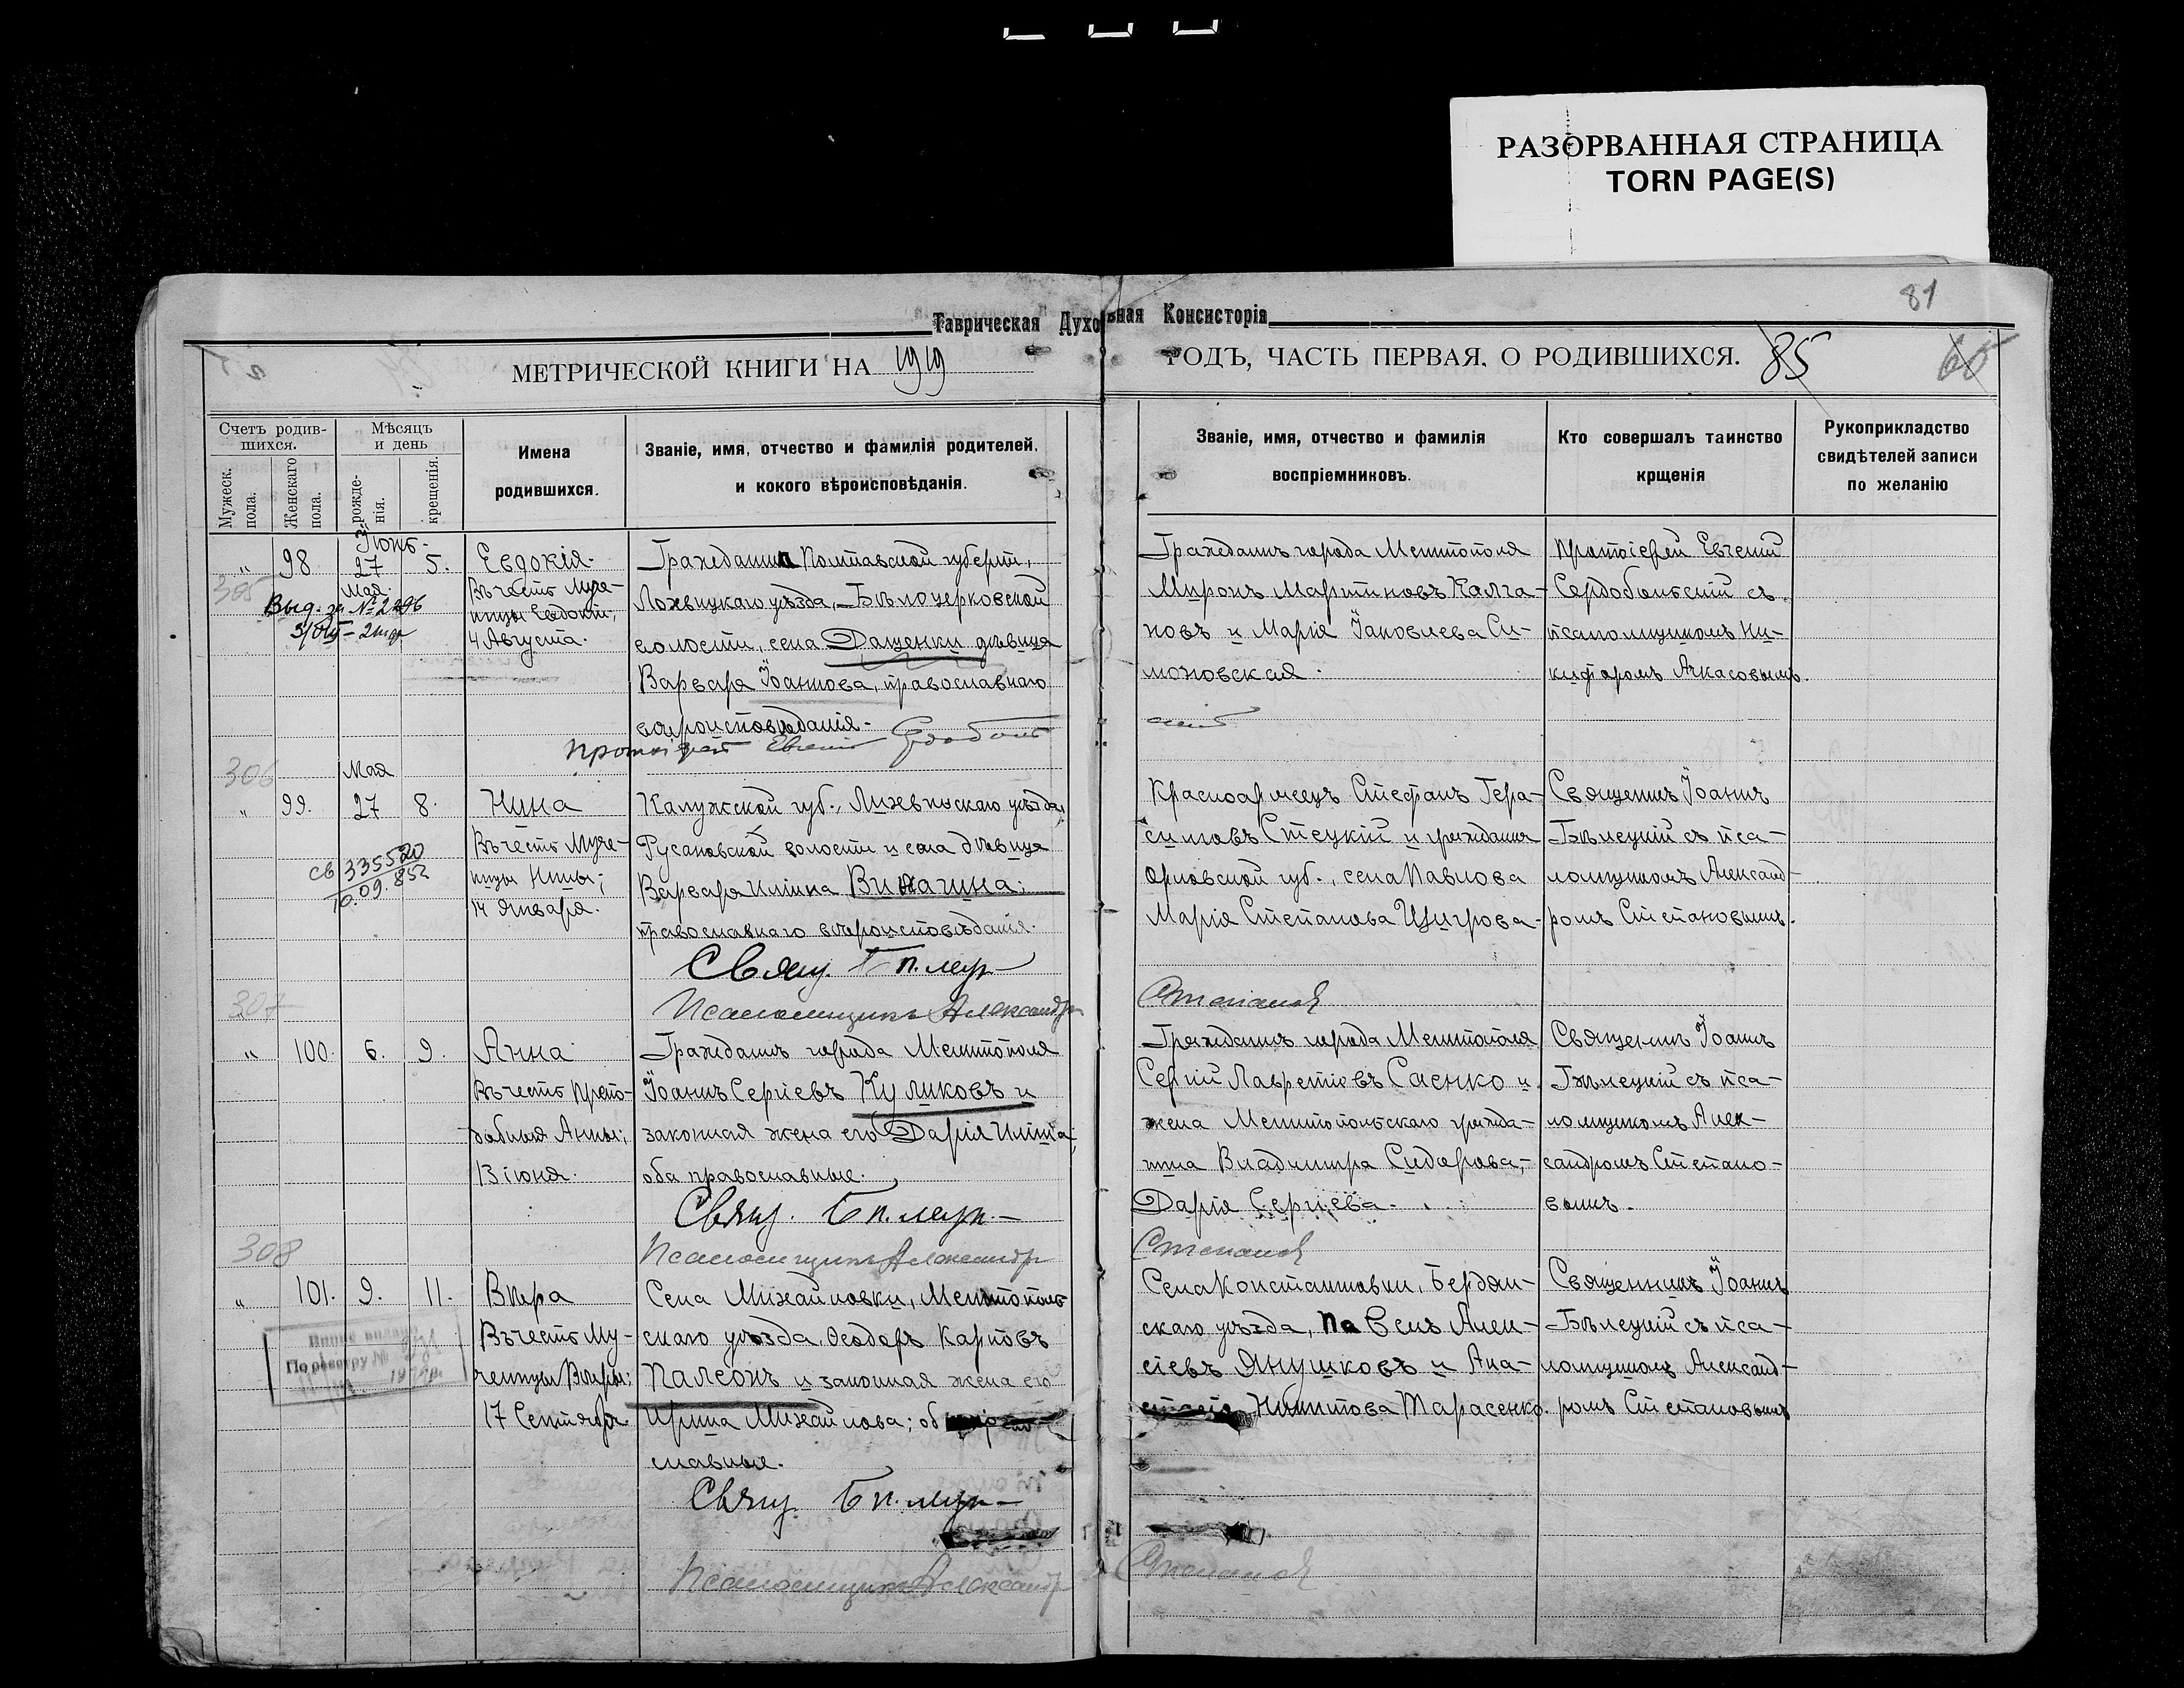 РАЗОРВАННАЯ СТРАНИЦА
TORN PAGE(S)
81
Таврическая Духовная Консисторія
МЕТРИЧЕСКОЙ КНИГИ НА 1919
ГОДЪ, ЧАСТЬ ПЕРВАЯ. О РОДИВШИХСЯ. 85
65
Счетъ родив-
шихся.
Мѣсяцъ
и день
Мужеск.
пола.
Женскаго
пола.
рожде-
нія.
крещенія.
Имена
родившихся.
Званіе, имя, отчество и фамилія родителей,
и кокого вѣроисповѣданія.
Званіе, имя, отчество и фамилія
воспріемниковъ.
Кто совершалъ таинство
крщенія
Рукоприкладство
свидѣтелей записи
по желанію
Іюнь-
„ 98 27 5.
Мая.
305
Евдокія.
Въ честь Муче-
ницы Евдокіи;
4 Августа.
Полтавской губерніи,
Лохвицкаго уѣзда, Бѣлоцерковской
волости, села Даценки дѣвица
Варвара Іоаннова, православнаго
вѣроисповѣданія.
Протоіерей Евгеній
Гражданинъ города Мелитополя
Миронъ Мартиновъ Калга-
новъ и Марія Іаковлева Си-
моновская.
Протоіерей Евгеній
Сердобольскій съ
псаломщикомъ Ни-
кифоромъ Ачкасовымъ.
306
Мая
„ 99. 27 8.
св 335520
10.09.852
Нина
Въ честь Муче-
ницы Нины;
14 Января.
Калужской губ.,
Русановской волости и села дѣвица
Варвара Иліина Винагина;
православнаго вѣроисповѣданія.
Свящ.
Псаломщикъ Александръ
Степановъ
Красноармеецъ Стефанъ Гера-
симовъ Стецкій и гражданка
Орловской губ., села Павлова
Марія Степанова Щигрова.
Священникъ Іоаннъ
Бѣлецкій съ пса-
ломщикомъ Александ-
ромъ Степановымъ.
307
„ 100. 6. 9.
Анна
Въ честь Препо-
добныя Анны;
13 іюня.
Гражданинъ города Мелитополя
Іоаннъ Сергіевъ Куликовъ и
законная жена его Дарія Иліина;
оба православные.
Свящ.
Псаломщикъ Александръ
Степановъ
Гражданинъ города Мелитополя
Сергій Лаврентіевъ Саенко и
жена Мелитопольскаго гражда-
нина Владиміра Сидорова,-
Дарія Сергіева.
Священникъ Іоаннъ
Бѣлецкій съ пса-
ломщикомъ Алек-
сандромъ Степано-
вымъ.
308
„ 101. 9. 11.
По реестру №
Вѣра
Въ честь Му-
ченицы Вѣры;
17 Сентября.
Села Михайловки, Мелитополь
скаго уѣзда Ѳеодоръ Карповъ
Палеонъ и законная жена его
Ирина Михайлова; оба
славные.
Свящ.
Псаломщикъ Александръ
Степановъ
Села Константиновки, Бердян-
скаго уѣзда, Павелъ Алек-
сіевъ Янушковъ и Ана-
Никитова Тарасенко.
Священникъ Іоаннъ
Бѣлецкій съ пса-
ломщикомъ Александ-
ромъ Степановымъ